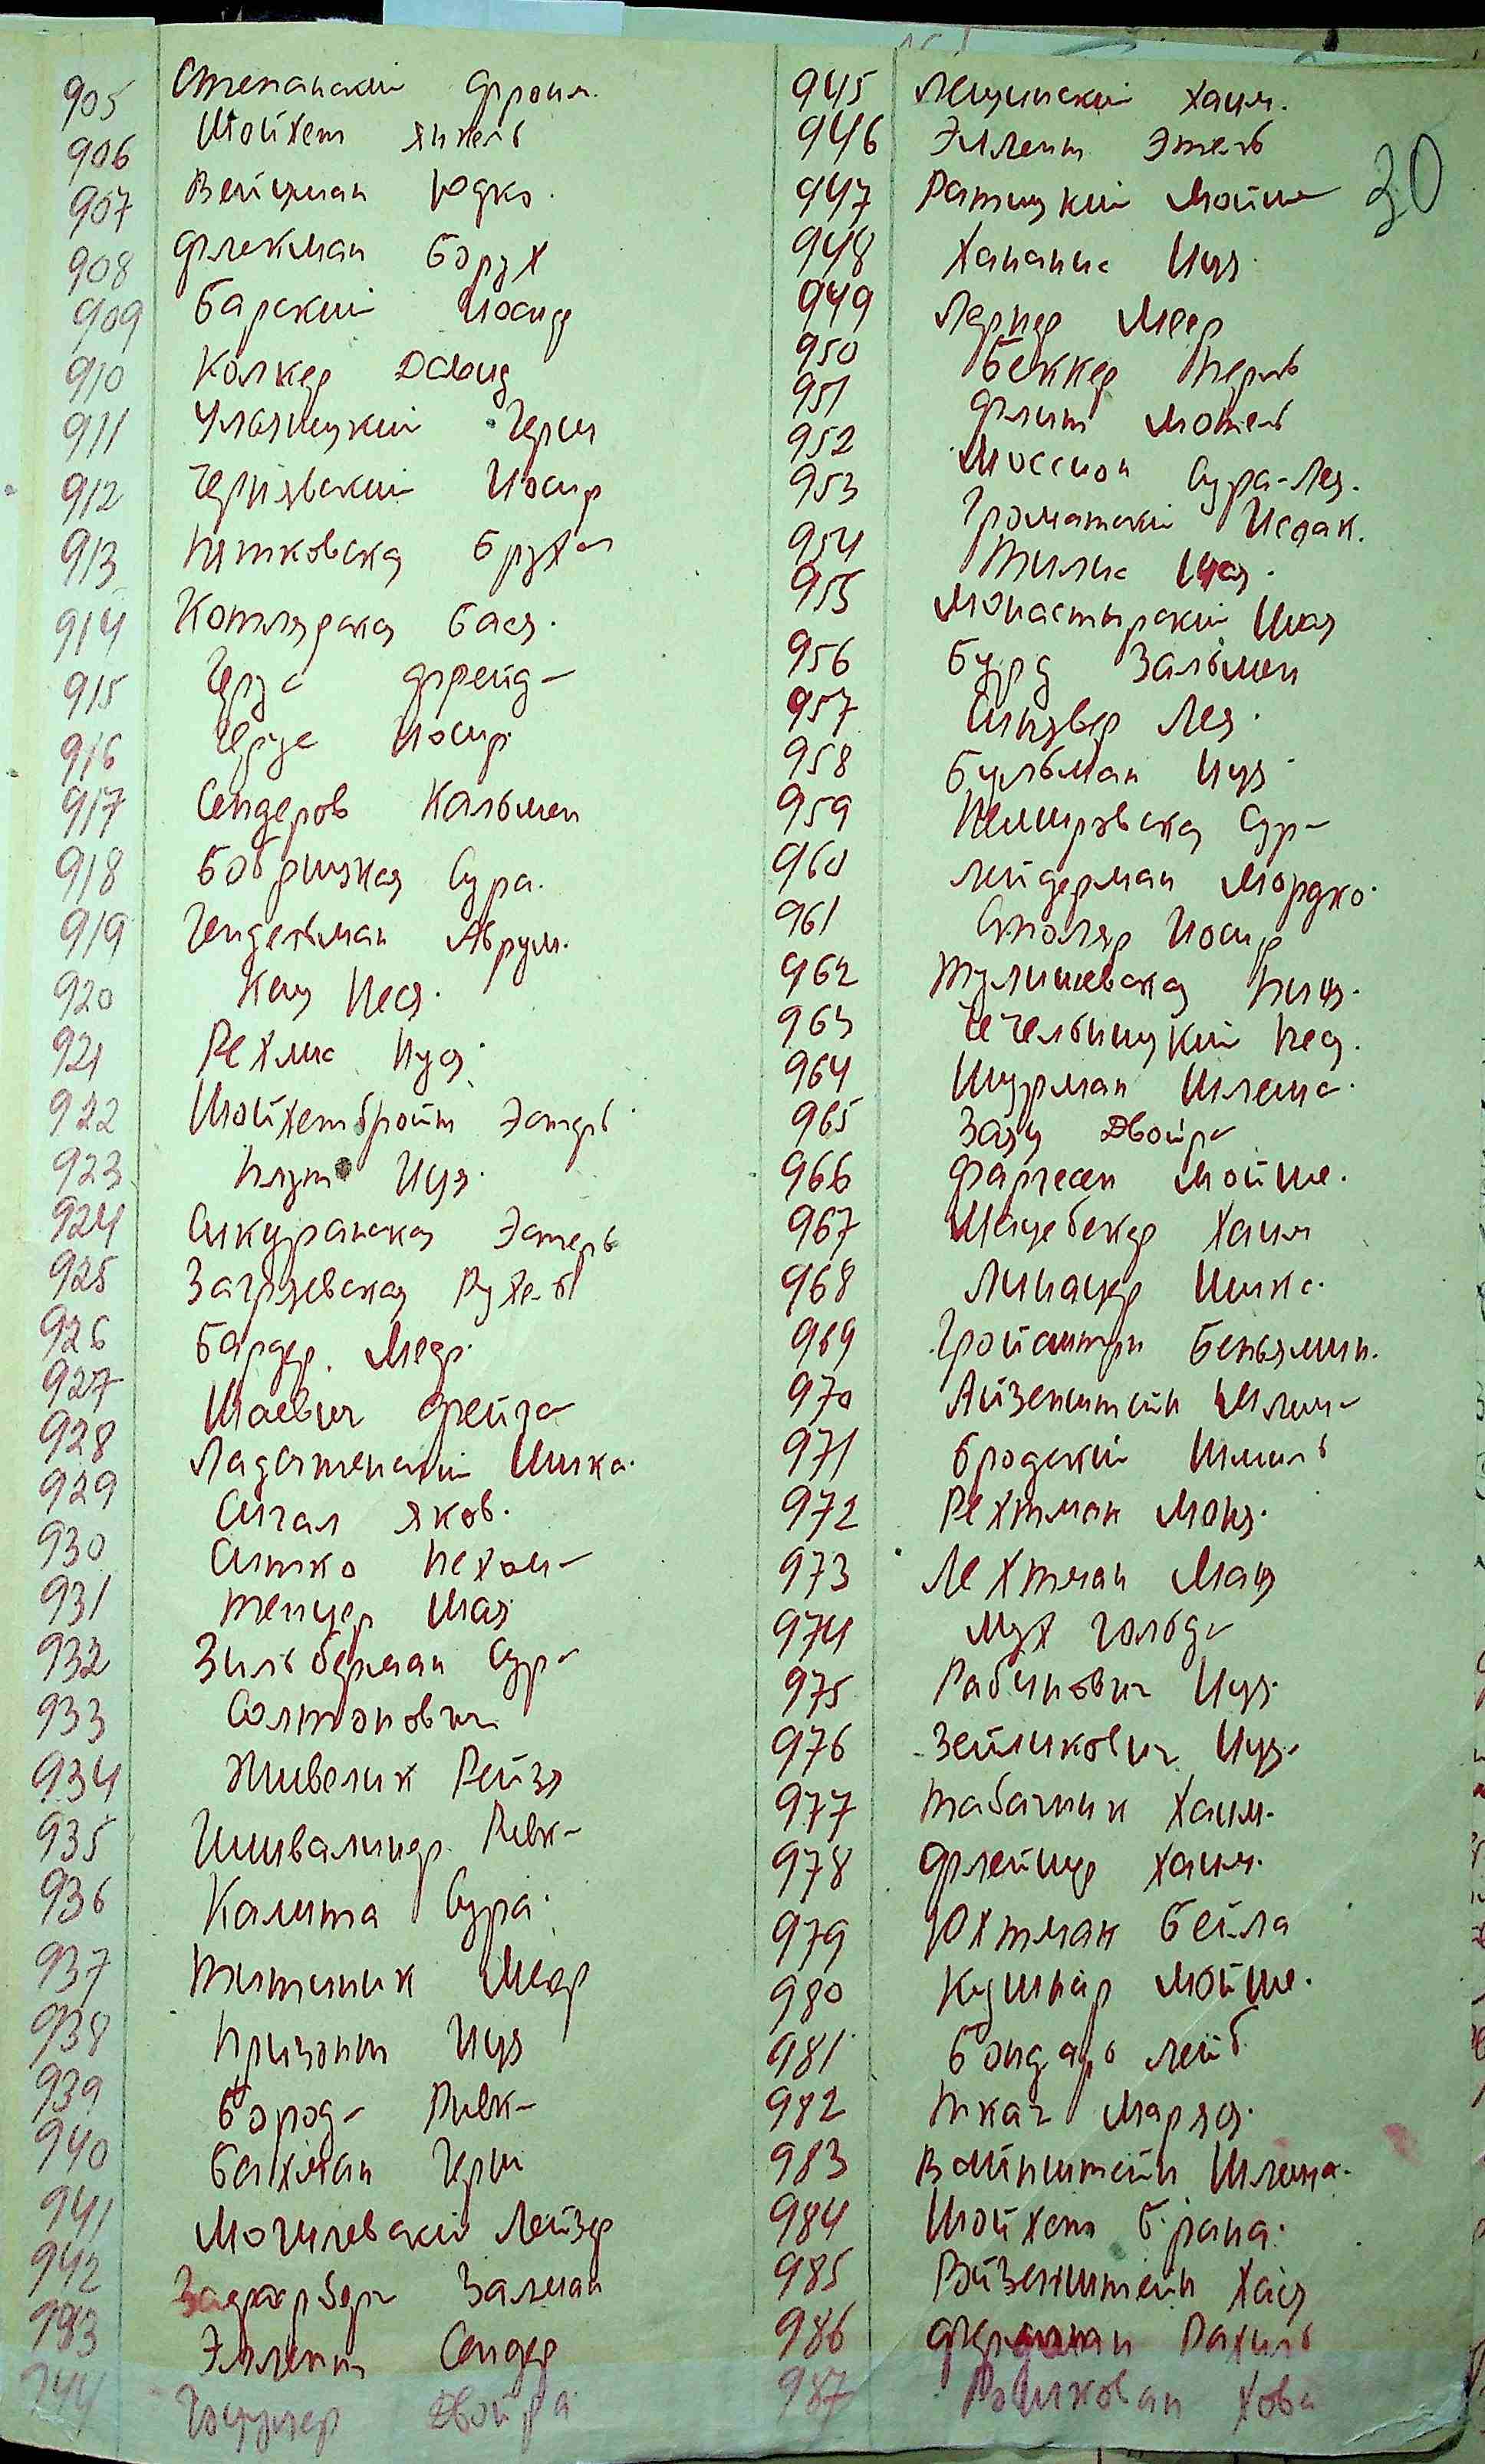 30
905 Степанский Фроим.
906 Шойхет Янкель
907 Вейцман Юдко.
908 Флекман Борух
909 Барский Иосиф
910 Колкер Давид
911 Уланицкий Герш
912 Чернявский Иосиф
913 Пятковская Бруха
914 Котлярская Бася.
915 Герус Фрейда
916 Герус Иосиф
917 Сендеров Кальмен
918 Бобрицкая Сура.
919 Гендельман Аврум.
920 Кац Неся.
921 Рехлис Нуся.
922 Шойхетбройт Эстер
923 Пляцт Иця.
924 Сикуранская Эстерь
925 Загряевская Рухель
926 Бардер. Меер.
927 Шаевич Фейга
928 Ладатенский Шика.
929 Сигал Яков.
930 Ситко Нехама
931 Тенцер Шая
932 Зильберман Сура
933 Солтанович
934 Живелик Рейзя
935 Гиивалинер. Ривка
936 Калита Сура.
937 Титиник Меер
938 Призонт Иця
939 Борода Ривка
940 Бахман Герш
941 Могилевский Лейзер
942 Залман
943 Эллент Сендер
944 Двойра
945 Лещинский Хаим.
946 Эллент Этель
947 Ратицкий Мойше
948 Хананис Иця.
949 Лернер Меер
950 Беккер Перль
951 Флит Мотель
952 Моссион Сура-Лея.
953 Громатский Исаак.
954 Тилис Шая.
955 Монастырский Шая
956 Бурд Зальмен
957 Синявер Лея.
958 Бульман Иця
959 Немировская Сура
960 Лейдерман Мордко.
961 Столяр Иосиф
962 Тулишевская
963 Чечельницкий Песя.
964 Шурман Шлема.
965 Заяц Двойра
966 Фаргесен Мойше.
967 Мацебекер Хаим
968 Линацер Шика.
969 Гройсштейн Беньямин.
970 Айзенштейн Шлима
971 Бродский Шмиль
972 Рехтман Моня.
973 Лехтман Маня
974 Мух Гольда
975 Рабинович Иця.
976 Зейликович Иця.
977 Табачник Хаим.
978 Флейшер Хаим.
979 Юхтман Бейла
980 Кушнар Мойше.
981 Бондарь Лейб.
982 Ткач Маряся.
983 Вайнштейн Шлема.
984 Шойхет Брана.
985 Вайзенштейн Хася
986 Рахиль
987 Рошкован Хова